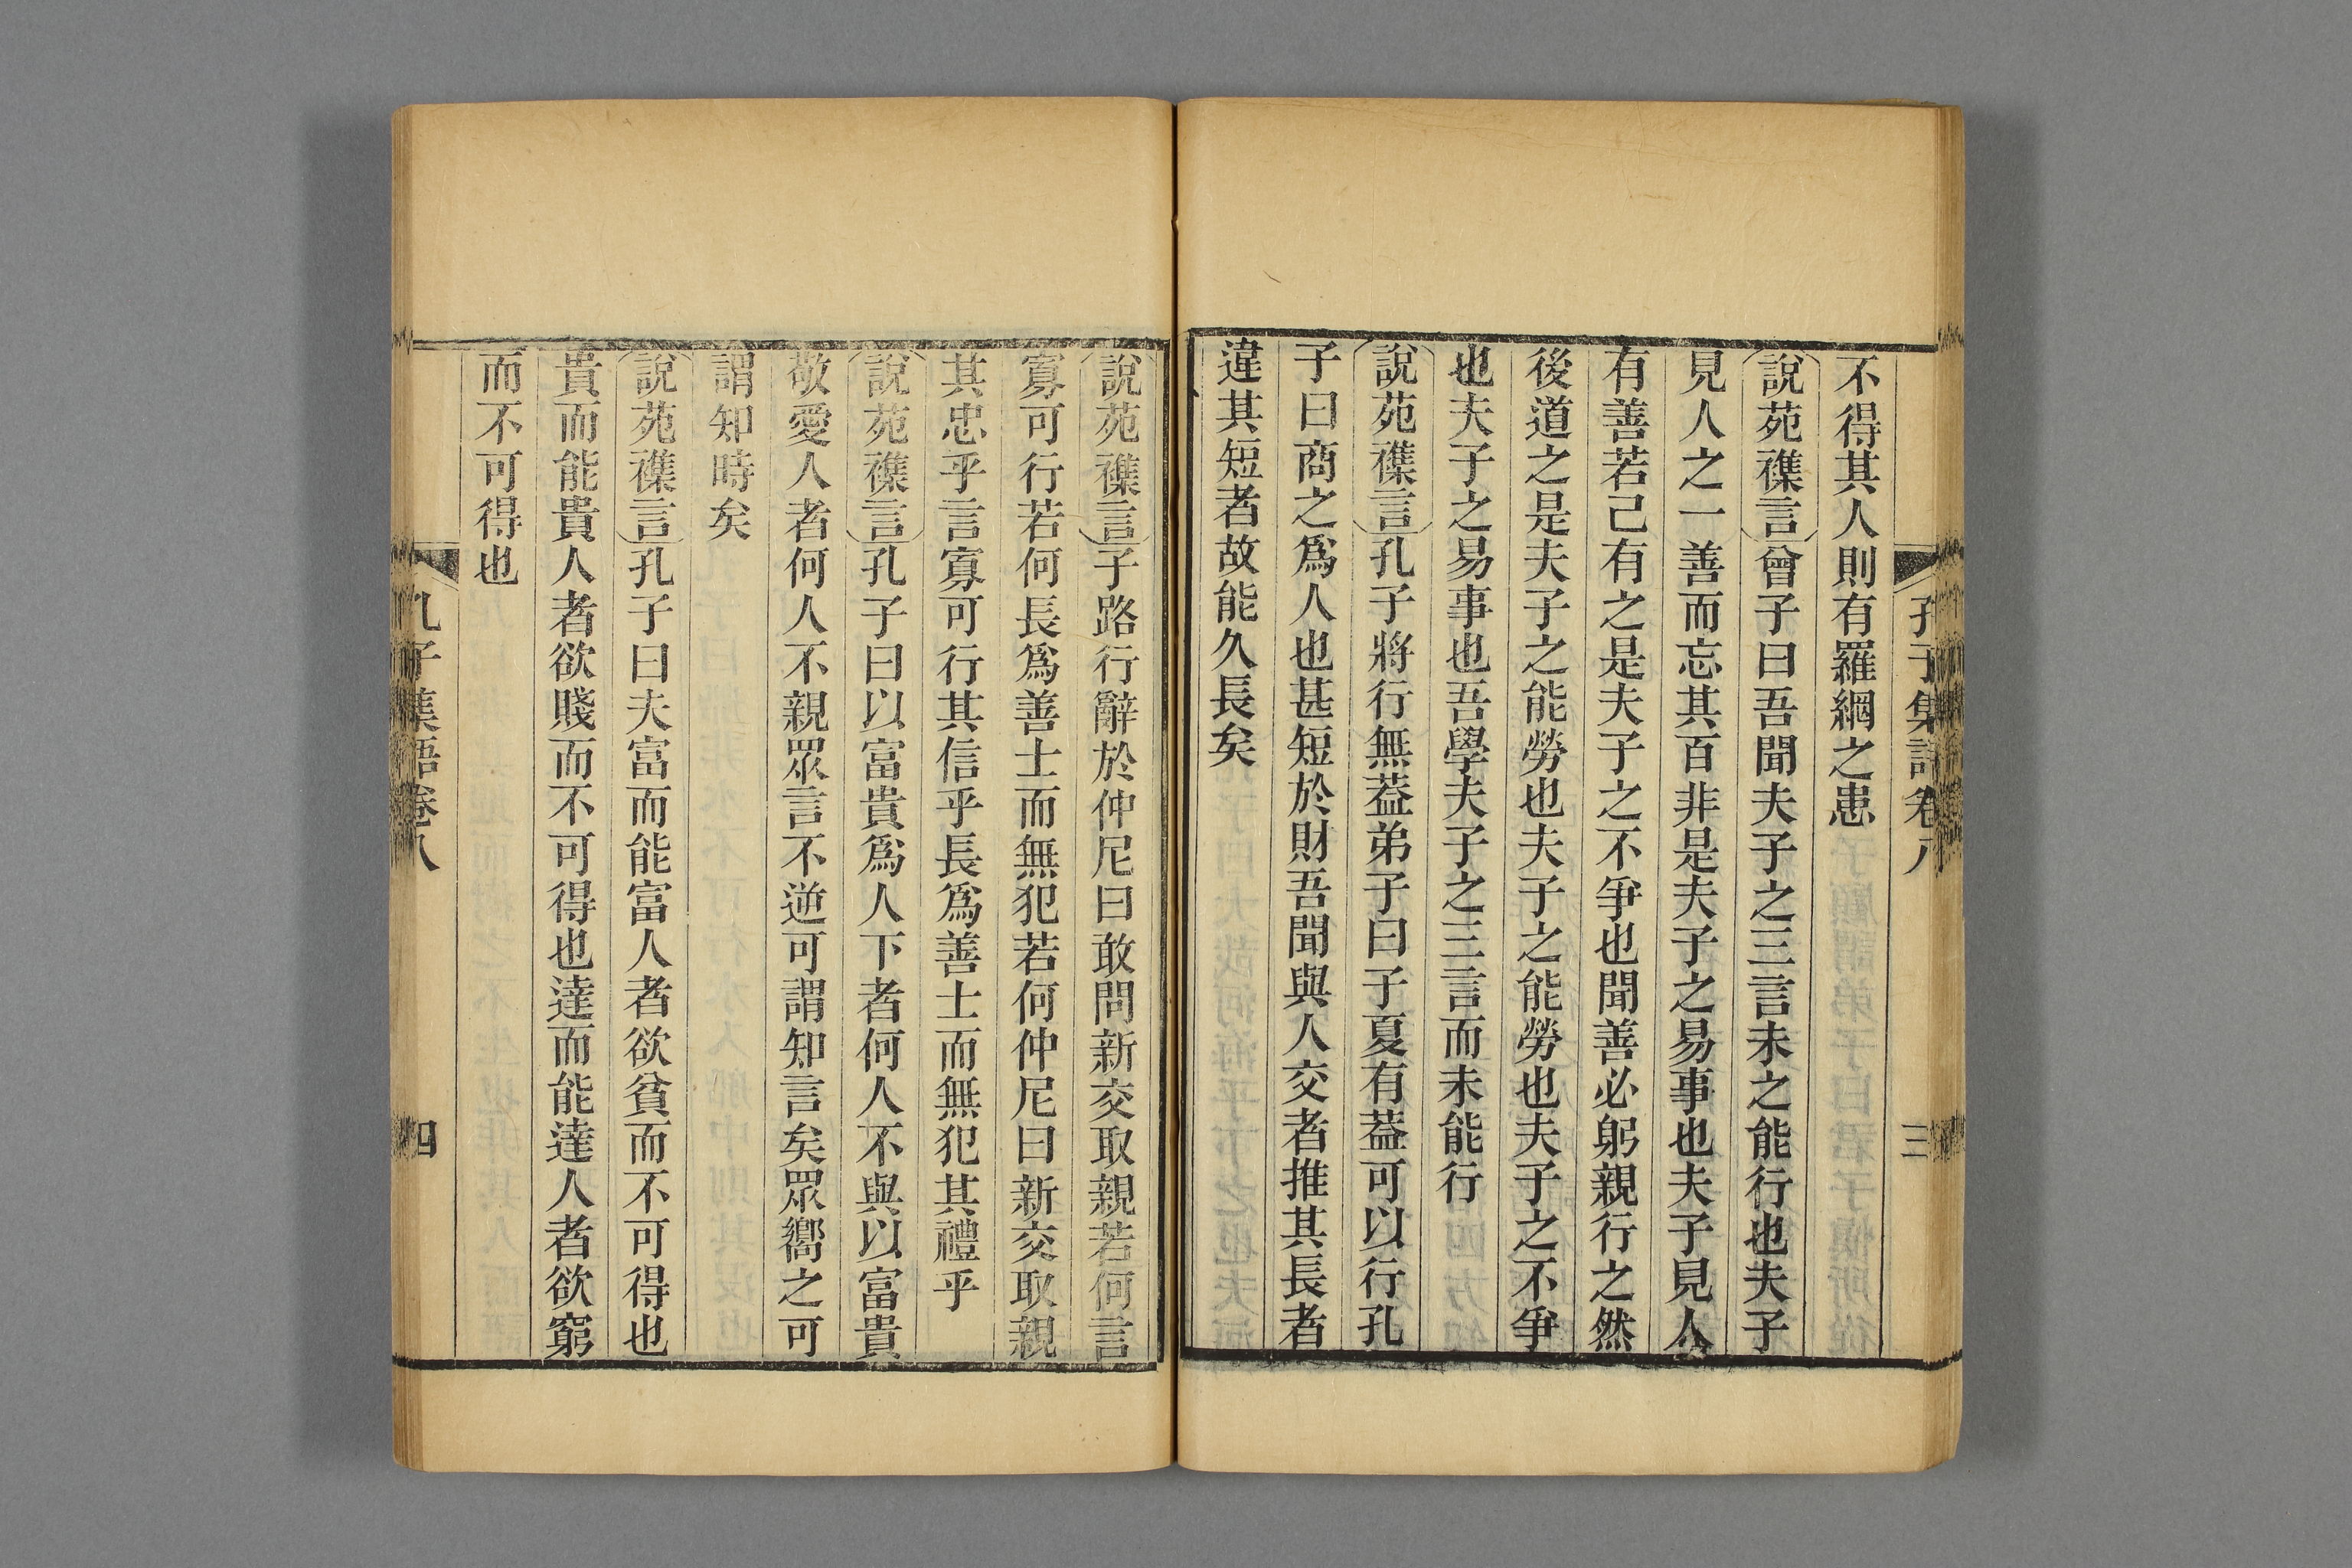 孔子集語卷八
三
不得其人則有羅網之患
說苑襍言曾子曰吾聞夫子之三言未之能行也夫子
見人之一善而忘其百非是夫子之易事也夫子見人
有善若己有之是夫子之不爭也聞善必躬親行之然
後道之是夫子之能勞也夫子之能勞也夫子之不爭
也夫子之易事也吾學夫子之三言而未能行
說苑襍言孔子將行無葢弟子曰子夏有葢可以行孔
子曰商之爲人也甚短於財吾聞與人交者推其長者
違其短者故能久長矣
說苑襍言子路行辭於仲尼曰敢問新交取親若何言
寡可行若何長爲善士而無犯若何仲尼曰新交取親
其忠乎言寡可行其信乎長爲善士而無犯其禮乎
說苑襍言孔子曰以富貴爲人下者何人不與以富貴
敬愛人者何人不親眾言不逆可謂知言矣眾嚮之可
謂知時矣
說苑襍言孔子曰夫富而能富人者欲貧而不可得也
貴而能貴人者欲賤而不可得也達而能達人者欲窮
而不可得也
孔子集語卷八
四